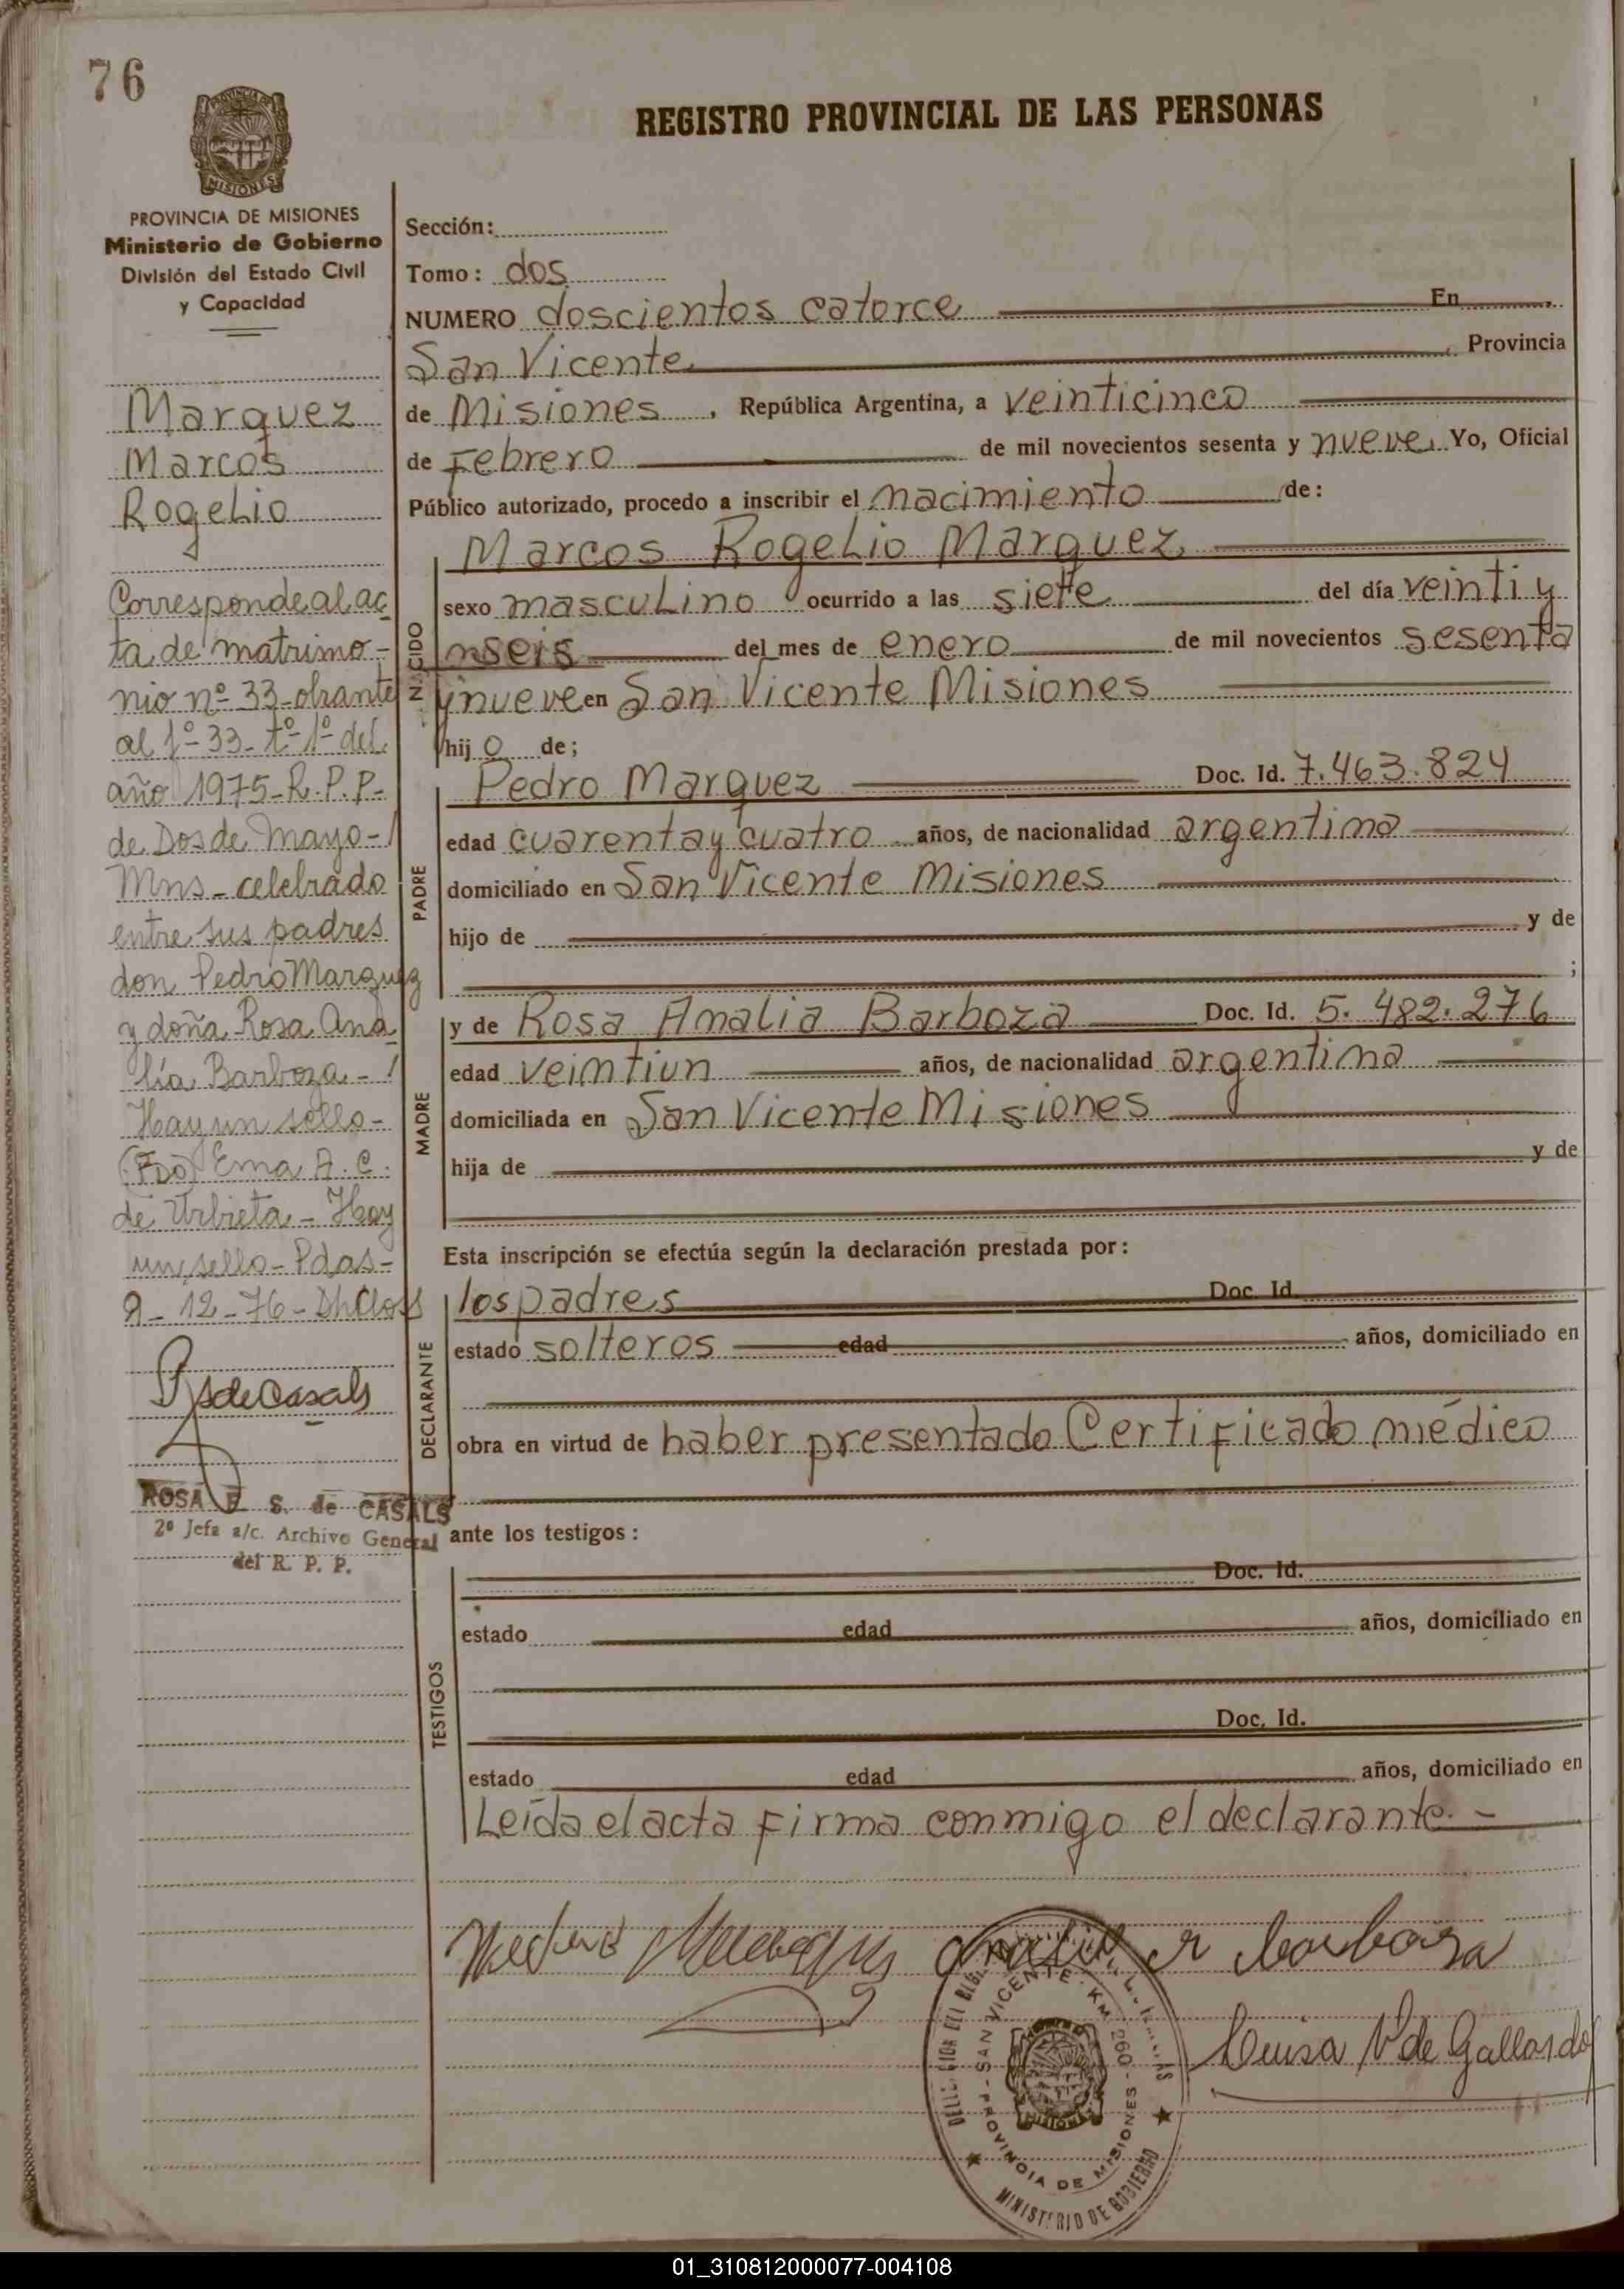 76
REGISTRO PROVINCIAL DE LAS PERSONAS
MISIONES
PROVINCIA DE MISIONES
Ministerio de Gobierno
División del Estado Civil
y Capacidad
Marquez
Marcos
Rogelio
Corresponde al ac
ta de matrimo-
nio nº 33 obrante
al fº 33 - tº 1º del
año 1975 - R. P. P-
de Dos de Mayo-
Mns - celebrado
entre sus padres
don Pedro Marquez
y doña Rosa Ana
lía Barboza -
Hay un sello -
(FDO) Ema A. C.
de Urbieta - Hay
un sello - Pdas -
9 - 12 - 76 -
ROSA E. S. de CASALS
2º Jefa a/c. Archivo General
del R. P. P.
Sección:
Tomo: dos
NUMERO doscientos catorce En
San Vicente Provincia
de Misiones, República Argentina, a veinticinco
de Febrero de mil novecientos sesenta y nueve Yo, Oficial
Público autorizado, procedo a inscribir el nacimiento de:
Marcos Rogelio Marquez
NACIDO
sexo masculino ocurrido a las siete del día veinti y
seis del mes de enero de mil novecientos sesenta
y nueve en San Vicente Misiones
hij o de;
PADRE
Pedro Marquez Doc. Id. 7.463.824
edad cuarenta y cuatro años, de nacionalidad argentina
domiciliado en San Vicente Misiones
hijo de y de
;
MADRE
y de Rosa Amalia Barboza Doc. Id. 5.482.276
edad veintiun años, de nacionalidad argentina
domiciliada en San Vicente Misiones
hija de y de
Esta inscripción se efectúa según la declaración prestada por:
DECLARANTE
los padres Doc. Id.
estado solteros edad años, domiciliado en
obra en virtud de haber presentado Certificado médico
ante los testigos:
TESTIGOS
Doc. Id.
estado edad años, domiciliado en
Doc. Id.
estado edad años, domiciliado en
Leída el acta firma conmigo el declarante. -
barboza
Luisa V. de Gallardo
SAN VICENTE - KM. 290 - PROVINCIA DE MISIONES
MINISTERIO DE GOBIERNO
MISIONES
01_310812000077-004108